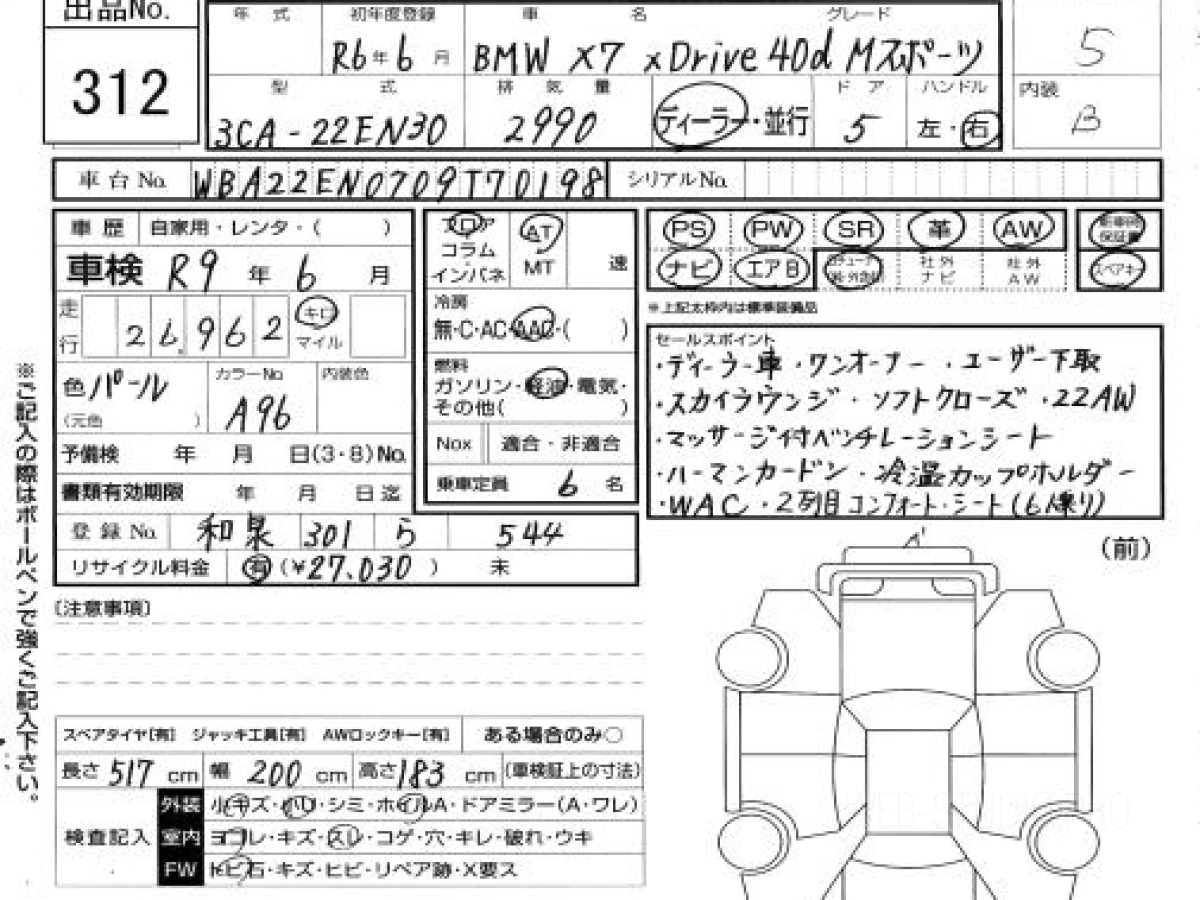 出品No.
312
年式 初年度登録 車名 グレード
R6年6月 BMW X7 xDrive 40d Mスポーツ
5
型式 排気量 ドア ハンドル
3CA-22EN30 2990 ディーラー・並行 5 左・右
内装
B
車台No. WBA22EN0709T70198 シリアルNo.
車歴 自家用・レンタ・( )
車検 R9年6月
走行 26,962 キロ マイル
色 パール カラーNo. A96 内装色
(元色 )
予備検 年 月 日(3・8)No.
書類有効期限 年 月 日迄
フロア コラム インパネ AT MT 速
冷房
無・C・AC・AAC・( )
燃料
ガソリン・軽油・電気・
その他( )
Nox 適合・非適合
乗車定員 6名
PS PW SR 革 AW 保証書
ナビ エアB 社外ナビ 社外AW スペアキー
※上記太枠内は標準装備品
セールスポイント
・ディーラー車・ワンオーナー・ユーザー下取
・スカイラウンジ・ソフトクローズ・22AW
・マッサージ付ベンチレーションシート
・ハーマンカードン・冷温カップホルダー
・WAC・2列目コンフォート・シート(6人乗り)
登録No. 和泉 301 ら 544
リサイクル料金 有(¥27,030) 未
(注意事項)
(前)
スペアタイヤ[有] ジャッキ工具[有] AWロックキー[有] ある場合のみ○
長さ517cm 幅200cm 高さ183cm (車検証上の寸法)
検査記入
外装 小キズ・ハリ・シミ・ホイルA・ドアミラー(A・ワレ)
室内 ヨゴレ・キズ・スレ・コゲ・穴・キレ・破れ・ウキ
FW トビ石・キズ・ヒビ・リペア跡・X要ス
※ご記入の際はボールペンで強くご記入下さい。